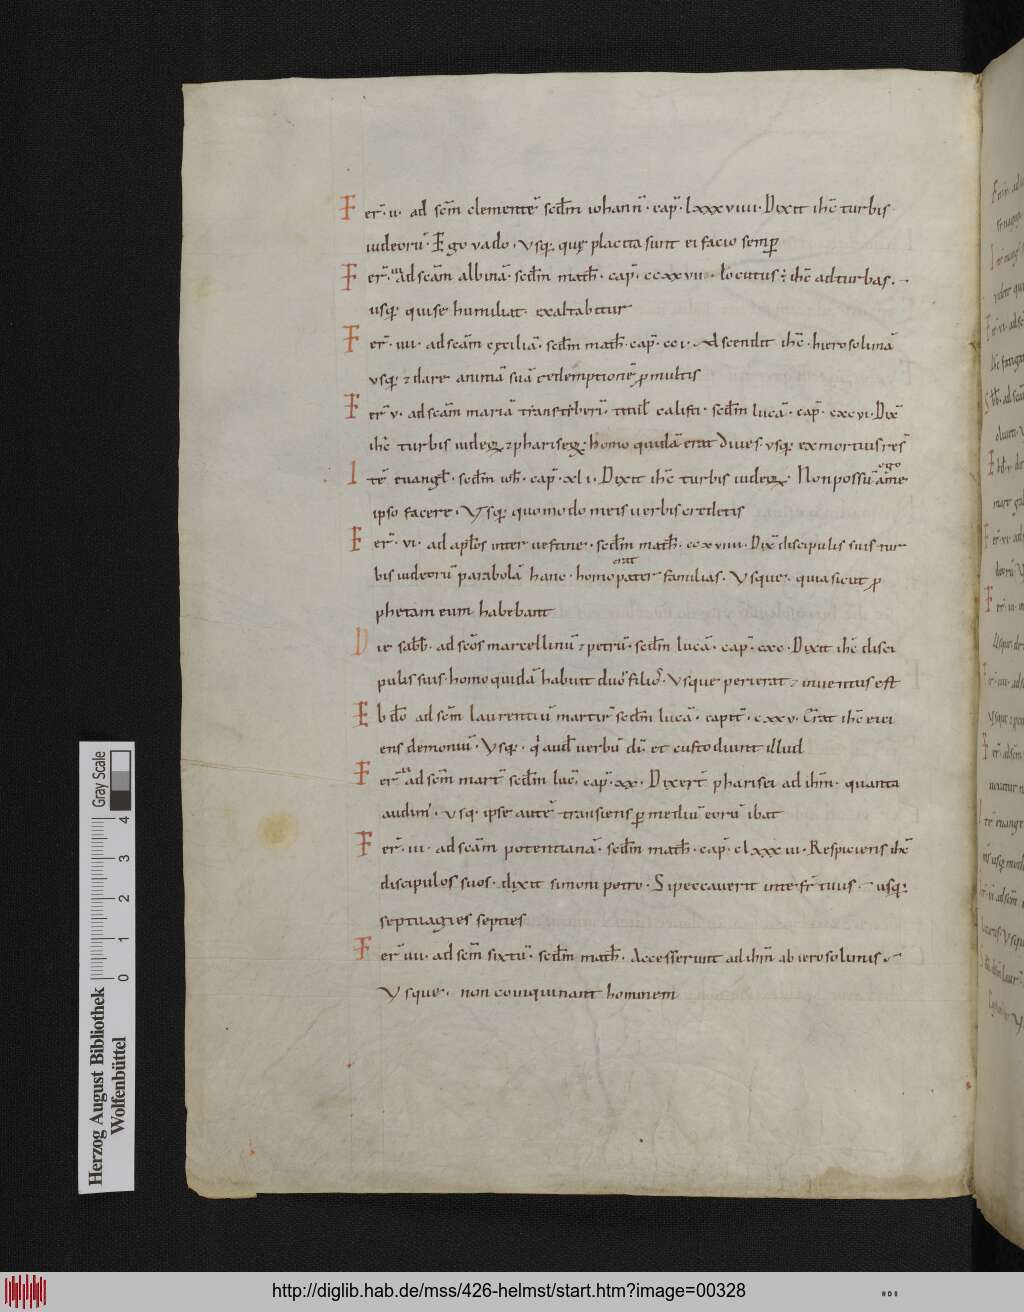 Fer̄. ii. ad sc̄m clementē scd̄m iohann̄. cap̄. lxxxviiii. Dixit ihc̄ turbis
iudeorū. Ego vado. Vsq;. quę placita sunt ei facio semp̄
Fer̄. iii ad scām albinā. scd̄m math̄. cap̄. ccxxvii. Locutus ÷ ihc̄ ad turbas.
usq; qui se humiliat. exaltabitur
Fer̄. iiii. ad scām cęciliā. scd̄m math̄. cap̄. cci. Ascendit ihc̄. hierosolimā
vsq; ⁊ dare animā suā redemptionē ꝓ multis
Fer̄ v. ad scām mariā transtiberī. titul̄ calisti. scd̄m lucā. cap̄. cxcvi. Dix̄
ihc̄ turbis iudeoꝝ ⁊ phariseoꝝ. homo quidā erat diues. vsq; ex mortuis res̄
Itē euangl̄. scd̄m ioh̄. cap̄. xli. Dixit ihc̄ turbis iudeoꝝ. Non possū ego a me
ipso facere. Vsq; quomodo meis uerbis credetis
Fer̄. vi. ad apl̄os inter uestine. scd̄m math̄. ccxviiii. Dix̄ discipulis suis tur
bis iudeorū parabolā hanc. homo erat pater familias. Vsque. quia sicut ꝓ
phetam eum habebant
Die sabb̄. ad scōs marcellinū ⁊ petrū. scd̄m lucā. cap̄. cxc. Dixit ihc̄ disci
pulis suis. homo quidā habuit duos filios. Vsque perierat ⁊ inuentus est
Ebd̄o ad scm̄ laurentiū martir̄ scd̄m lucā. capit̄. cxxv. Erat ihc̄ eici
ens demoniū. Vsq;. qī aud̄ uerbū dī. et custodiunt illud
Fer̄ ii ad scm̄ marc̄ scd̄m luc̄. cap̄. xx. Dixer̄t pharisei ad ihm̄. quanta
audim̄. vsq. ipse autē transiens ꝑ mediū eorū ibat
Fer̄. iii. ad scām potentianā. scd̄m math̄. cap̄. clxxxiii. Respiciens ihc̄
discipulos suos. dixit simoni petro. Si peccauerit in te fr̄ tuus. usq;
septuagies septies
Fer̄ iiii. ad scm̄ sixtū. scd̄m math̄. Accesserunt ad ihm̄ ab ierosolimis
Vsque. non coinquinant hominem
Herzog August Bibliothek
Wolfenbüttel
0 1 2 3 4
Gray Scale
http://diglib.hab.de/mss/426-helmst/start.htm?image=00328